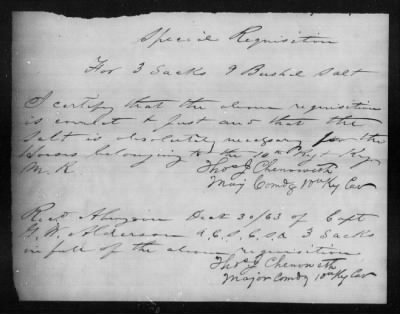 Special Requisition
For 3 Sacks 9 Bushel Salt
I certify that the above requisition
is correct & just and that the
Salt is absolutely necessary for the
Horses belonging to the 10th Ky
M. R.
Thos J Chenoweth
Maj Comdg 10th Ky Cav
Recd Dec 30/63 of Capt
G. W. Alderson A. C. S. C. S. A 3 Sacks
in full of the above requisition
Thos J Chenoweth
Major Comdg 10th Ky Cav